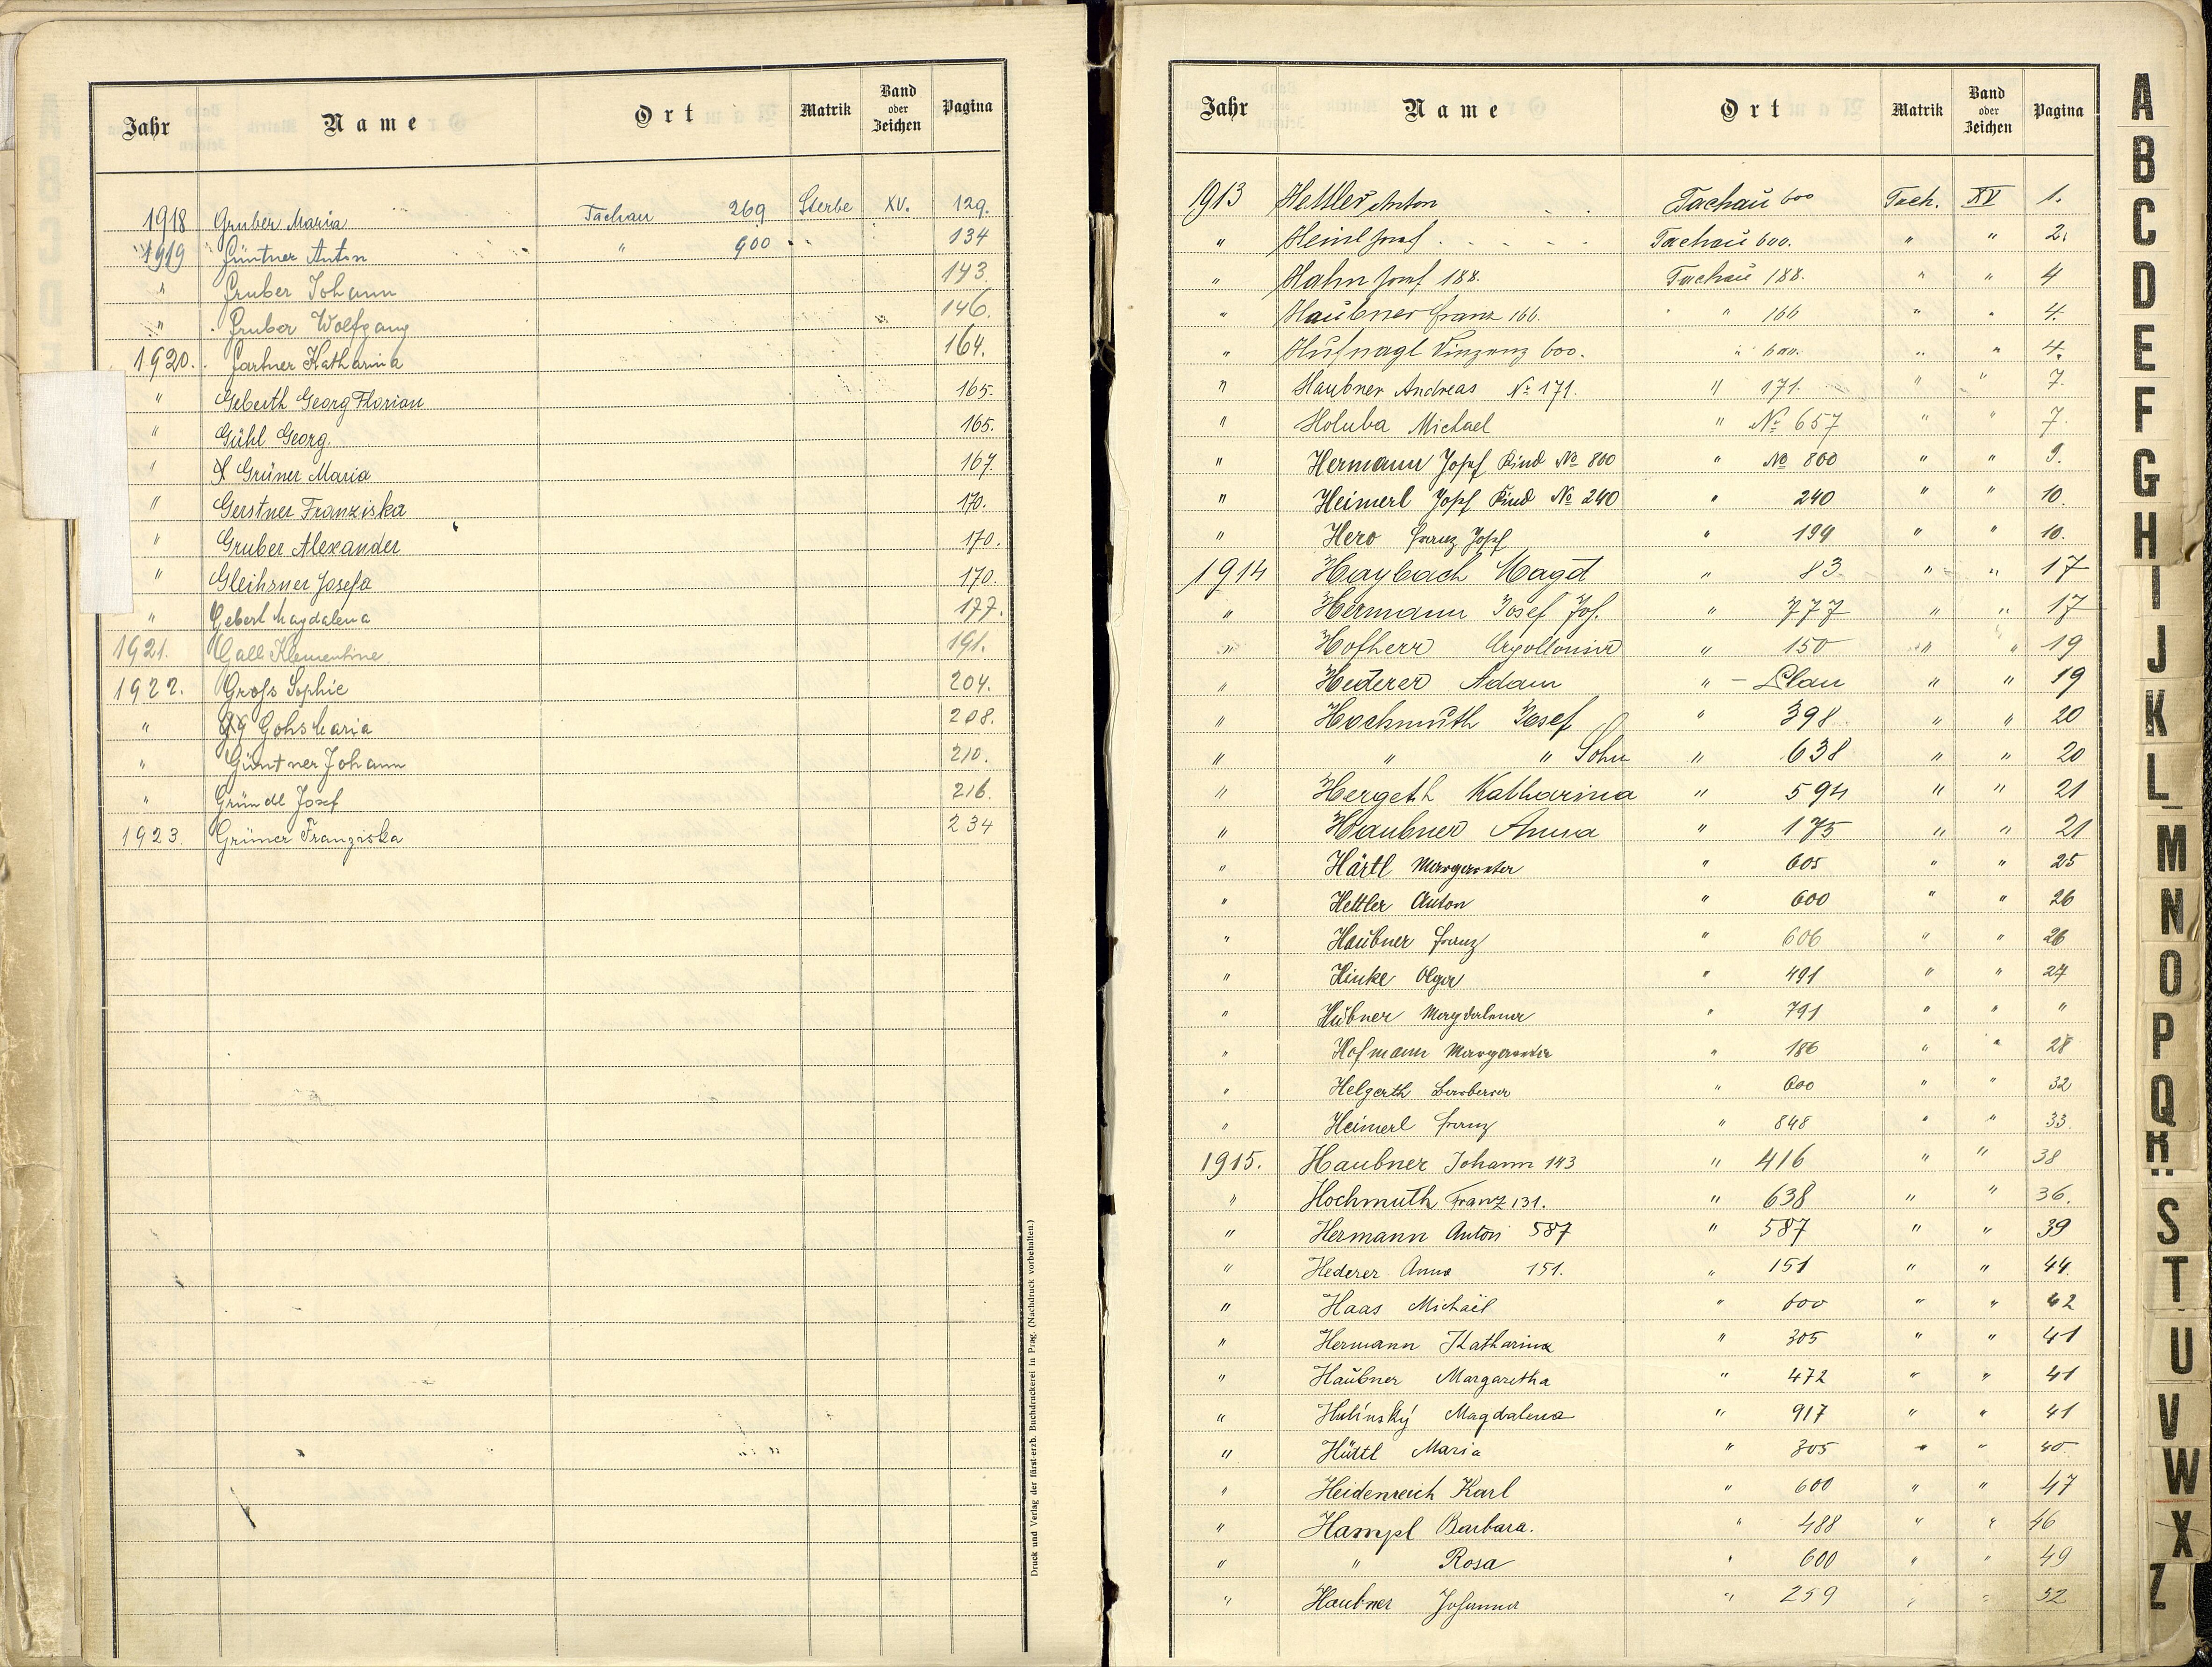 Jahr Name Ort Matrik Band oder Zeichen Pagina
1918 Gruber Maria Tachau 269 Sterbe XV. 129.
1919 Güntner Anton " 900 134
" Gruber Johann 143
" Gruber Wolfgang 146.
1920. Gartner Katharina 164.
" Geberth Georg Florian 165.
" Gühl Georg. 165.
" Grüner Maria 167.
" Gerstner Franziska 170.
" Gruber Alexander 170.
" Gleihsner Josefa 170.
" Gebert Magdalena 177.
1921. Gall Klementine 191.
1922. Grofs Sophie 204.
" Gohs Maria 208.
" Güntner Johann 210.
" Gründl Josef 216.
1923. Grüner Franziska 234
Druck und Verlag der fürst-erzb. Buchdruckerei in Prag. (Nachdruck vorbehalten.)
Jahr Name Ort Matrik Band oder Zeichen Pagina
1913 Hettler Anton Tachau 600 Tach. XV 1.
" Heinl Josef Tachau 600. " " 2.
" Hahn Josef 188. Tachau 188. " " 4
" Haubner Franz 166. " 166 " " 4.
" Hufnagl Vinzenz 600. " 600. " " 4.
" Haubner Andreas № 171. " 171. " " 7.
" Holuba Michael " № 657 " " 7.
" Hermann Josef Kind № 800 " № 800 " " 9.
" Heimerl Josef Kind № 240 " 240 " " 10.
" Hero Franz Josef " 199 " " 10.
1914 Haybach Magd " 83 " " 17
" Hermann Josef Jos. " 777 " " 17
" Hofherr Apollonia " 150 " " 19
" Hederer Adam " - Plan " " 19
" Hochmuth Josef " 398 " " 20
" " " Sohn " 638 " " 20
" Hergeth Katharina " 594 " " 21
" Haubner Anna " 175 " " 21
" Härtl Margareta " 605 " " 25
" Hettler Anton " 600 " " 26
" Haubner Franz " 606 " " 26
" Hinke Olga " 491 " " 27
" Hübner Magdalena " 791 " " "
" Hofmann Margareta " 186 " " 28
" Helgerth Barbara " 600 " " 32
" Heimerl Franz " 848 " " 33.
1915. Haubner Johann 143 " 416 " " 38
" Hochmuth Franz 131. " 638 " " 36.
" Hermann Anton 587 " 587 " " 39
" Hederer Anna 151. " 151 " " 44.
" Haas Michael " 600 " " 42
" Hermann Katharina " 305 " " 41
" Haubner Margaretha " 472 " " 41
" Hulínský Magdalena " 917 " " 41
" Hüttl Maria " 305 " " 40
" Heidenreich Karl " 600 " " 47
" Hampl Barbara. " 488 " " 46
" " Rosa " 600 " " 49
" Haubner Johanna " 259 " " 52
A
B
C
D
E
F
G
H
I
J
K
L
M
N
O
P
Q
R
S
T
U
V
W
X
Z